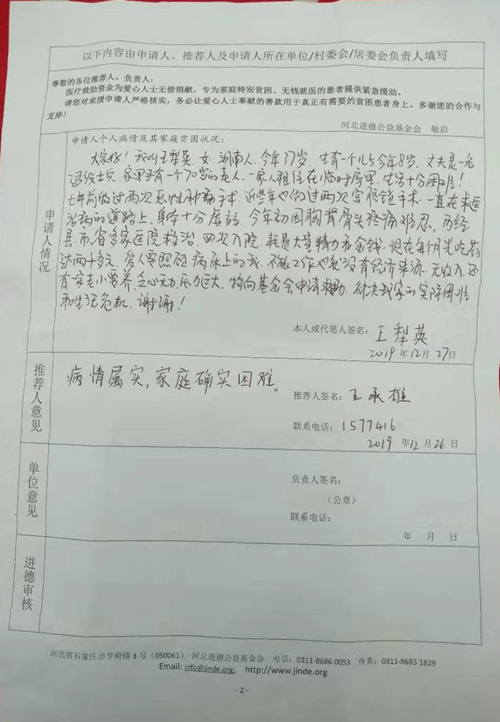 以下内容由申请人、推荐人及申请人所在单位/村委会/居委会负责人填写
尊敬的各位推荐人、负责人：
医疗救助资金为爱心人士无偿捐献，专为家庭特别贫困、无钱就医的患者提供紧急援助。
请您对求援申请人严格核实，务必让爱心人士奉献的善款用于真正有需要的贫困患者身上。多谢您的合作与
支持！
河北进德公益基金会 敬启
申请人情况
申请人个人病情及其家庭贫困状况：
大家好！我叫王犁英 女 湖南人，今年37岁，生有一个儿子今年8岁，丈夫是一名
退役士兵 家里还有一个70岁的老人 一家人租住在临时房里，生活十分困难！
七年前做过两次恶性肿瘤手术，近些年也做过两次宫修復手术，一直在求医
治病的道路上，身体十分虚弱，今年初因胸背骨头疼痛难忍，历经
县市省多家医院救治，四次入院 耗费大量精力和金钱，现在每个月光吃药
过两千多元，爱人要照顾病床上的我，不能工作也就没有经济来源，无收入，还
有家老小要养，心有力压力巨大，特向基金会申请救助，解决我家的实际困难
和生活危机，谢谢！
本人或代笔人签名：王犁英
2019年12月27日
推荐人意见
病情属实，家庭确实困难。
推荐人签名：王承雄
联系电话：1577416
2019年12月26日
单位意见
负责人签名：
（公章）
联系电话：
年 月 日
进德审核
河北省石家庄市学府路3号（050061） 河北进德公益基金会 电话：0311-8686 0053 传真：0311-8683 1829
Email: info@jinde.org; http://www.jinde.org
- 2 -